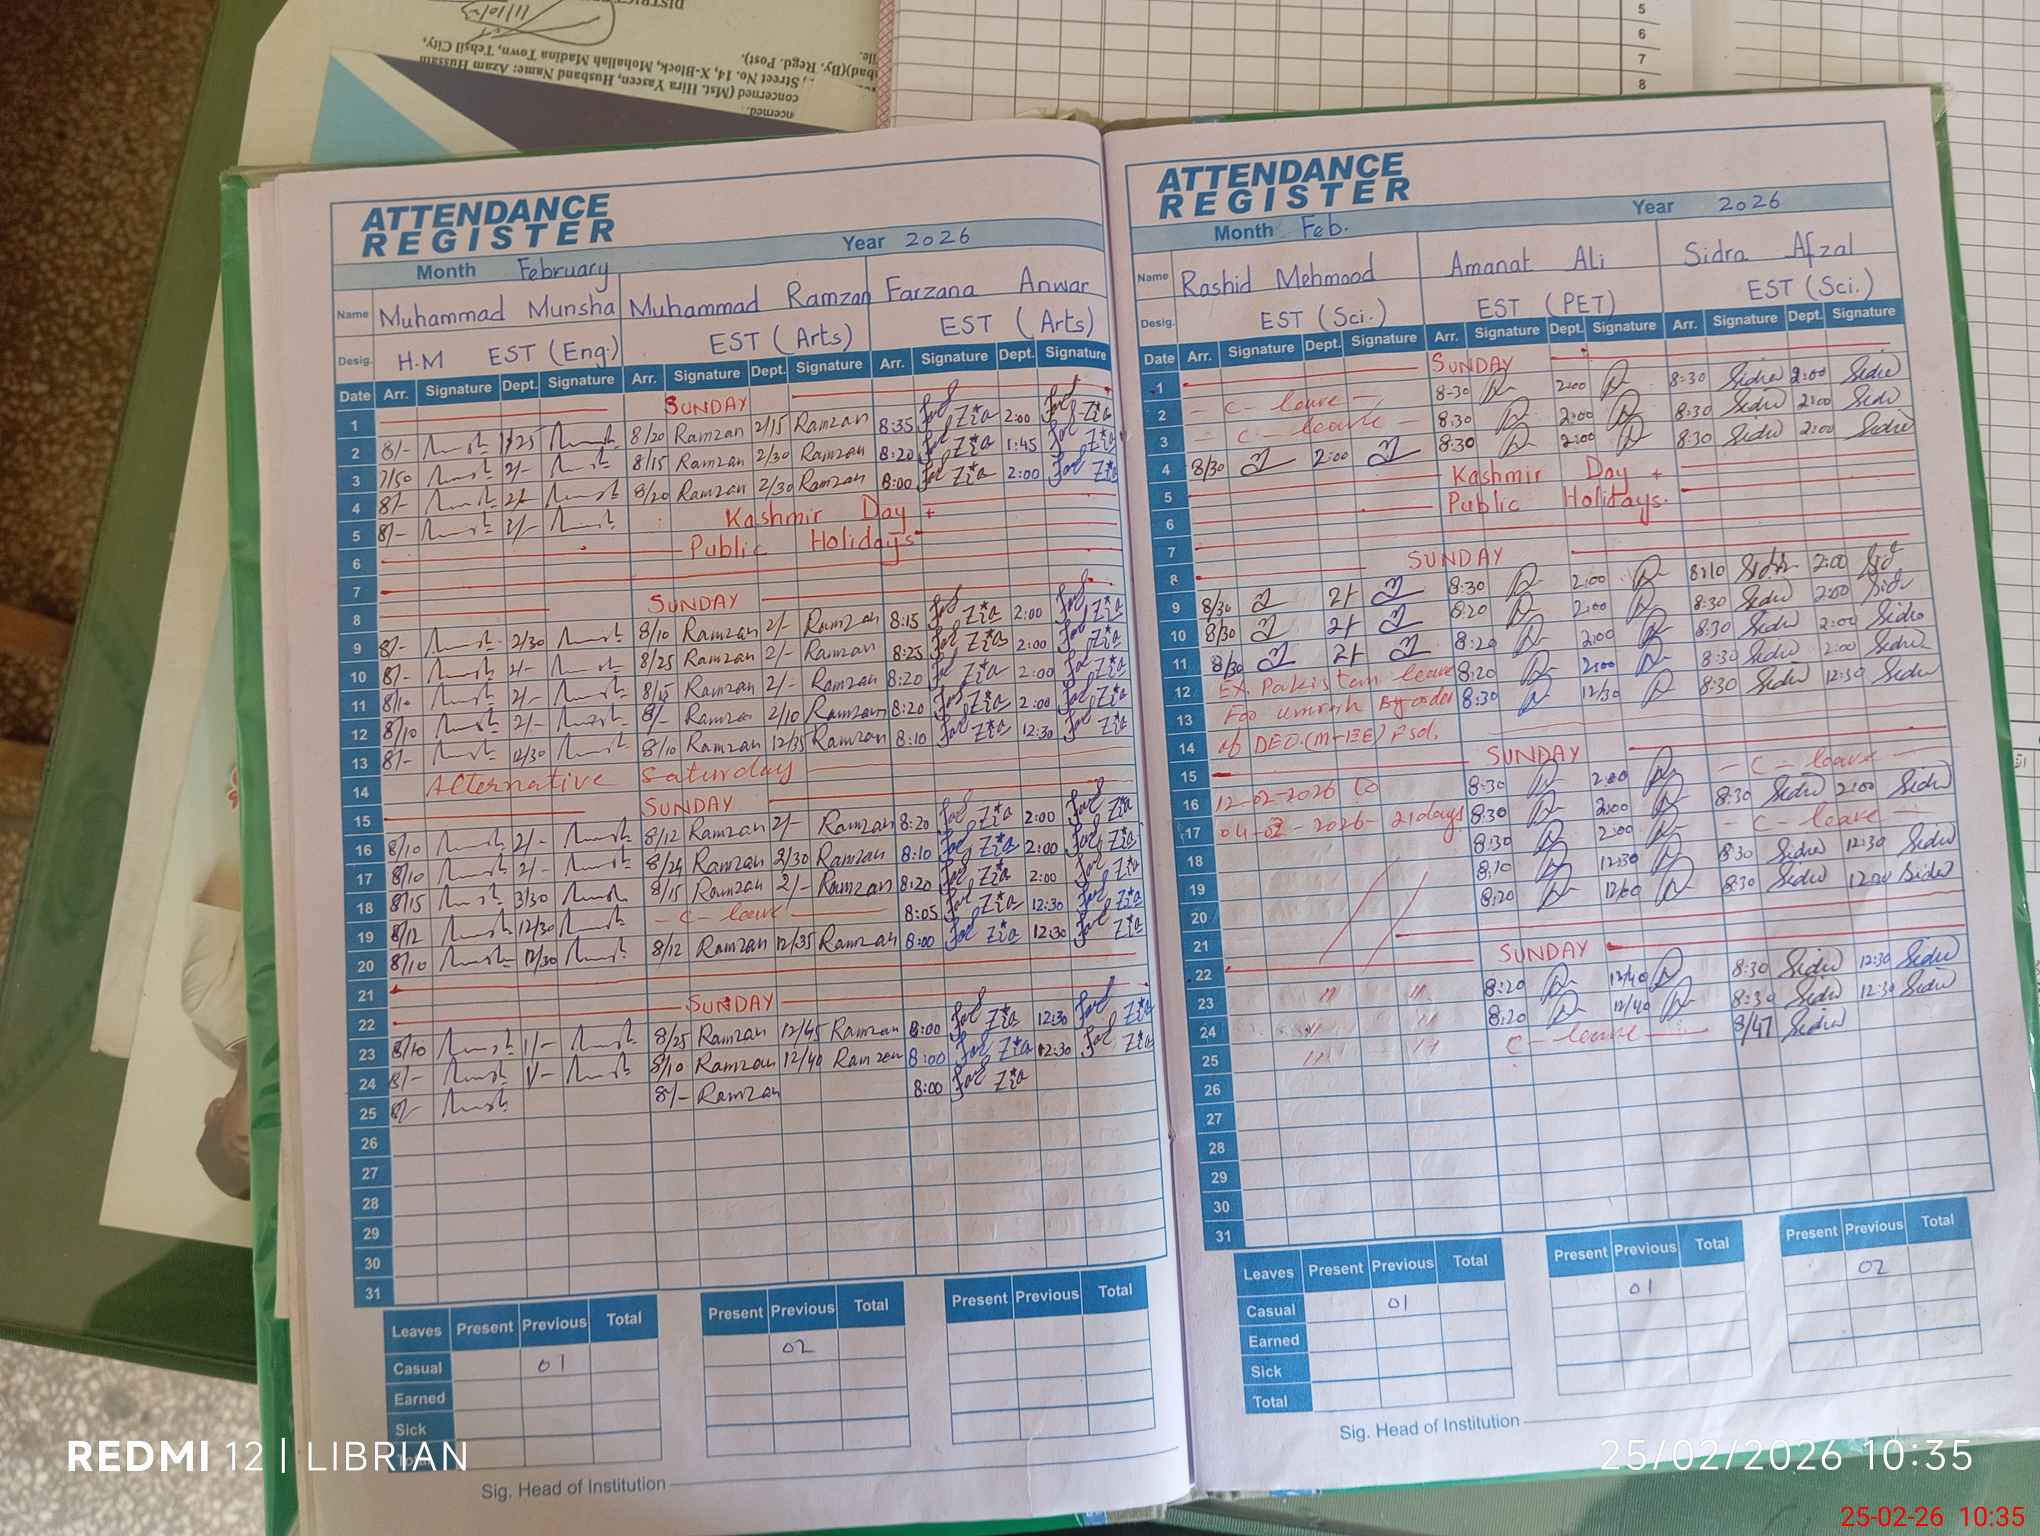 DISTRICT
11/10/25
concerned (Mst. Hira Yaseen, Husband Name: Azam Hussain
Street No. 14, X-Block, Mohallah Madina Town, Tehsil City,
bad)(By. Regd. Post).
5
6
7
8
ATTENDANCE
REGISTER
Month February Year 2026
Name Muhammad Munsha Muhammad Ramzan Farzana Anwar
Desig. H.M EST (Eng.) EST (Arts) EST (Arts)
Date Arr. Signature Dept. Signature Arr. Signature Dept. Signature Arr. Signature Dept. Signature
1 SUNDAY
2 8/- 1/25 8/20 Ramzan 2/15 Ramzan 8:35 Zia 2:00 Zia
3 7/50 2/- 8/15 Ramzan 2/30 Ramzan 8:20 Zia 1:45 Zia
4 8/- 2/- 8/20 Ramzan 2/30 Ramzan 8:00 Zia 2:00 Zia
5 8/- 2/- Kashmir Day +
6 Public Holidays
7
8 SUNDAY
9 8/- 2/30 8/10 Ramzan 2/- Ramzan 8:15 Zia 2:00 Zia
10 8/- 2/- 8/25 Ramzan 2/- Ramzan 8:25 Zia 2:00 Zia
11 8/10 2/- 8/15 Ramzan 2/- Ramzan 8:20 Zia 2:00 Zia
12 8/10 2/- 8/- Ramzan 2/10 Ramzan 8:20 Zia 2:00 Zia
13 8/- 12/30 8/10 Ramzan 12/35 Ramzan 8:10 Zia 12:30 Zia
14 Alternative Saturday
15 SUNDAY
16 8/10 2/- 8/12 Ramzan 2/- Ramzan 8:20 Zia 2:00 Zia
17 8/10 2/- 8/24 Ramzan 2/30 Ramzan 8:10 Zia 2:00 Zia
18 8/15 3/30 8/15 Ramzan 2/- Ramzan 8:20 Zia 2:00 Zia
19 8/12 12/30 - C - leave 8:05 Zia 12:30 Zia
20 8/10 12/30 8/12 Ramzan 12/35 Ramzan 8:00 Zia 12:30 Zia
21
22 SUNDAY
23 8/10 1/- 8/25 Ramzan 12/45 Ramzan 8:00 Zia 12:30 Zia
24 8/- 1/- 8/10 Ramzan 12/40 Ramzan 8:00 Zia 12:30 Zia
25 8/- 8/- Ramzan 8:00 Zia
26
27
28
29
30
31
Leaves Present Previous Total Present Previous Total Present Previous Total
Casual 01 02
Earned
Sick
Sig. Head of Institution
ATTENDANCE
REGISTER
Month Feb. Year 2026
Name Rashid Mehmood Amanat Ali Sidra Afzal
Desig. EST (Sci.) EST (PET) EST (Sci.)
Date Arr. Signature Dept. Signature Arr. Signature Dept. Signature Arr. Signature Dept. Signature
1 SUNDAY
2 - C - leave - 8-30 2:00 8:30 Sidra 2:00 Sidra
3 - C - leave - 8:30 2:00 8:30 Sidra 2:00 Sidra
4 8/30 2:00 8:30 2:00 8:30 Sidra 2:00 Sidra
5 Kashmir Day +
6 Public Holidays.
7
8 SUNDAY
9 8/30 2/- 8:30 2:00 8:10 Sidra 2:00 Sidra
10 8/30 2/- 8:20 2:00 8:30 Sidra 2:00 Sidra
11 8/30 2/- 8:20 2:00 8:30 Sidra 2:00 Sidra
12 Ex. Pakistan leave 8:20 2:00 8:30 Sidra 2:00 Sidra
13 For umrah By order 8:30 12/30 8:30 Sidra 12:30 Sidra
14 of DEO.(M-EE) Fsd.
15 SUNDAY
16 12-02-2026 to 8:30 2:00 - C - leave -
17 04-03-2026- 21days 8:30 2:00 8:30 Sidra 2:00 Sidra
18 8:30 2:00 - C - leave -
19 8:20 12:30 8:30 Sidra 12:30 Sidra
20 8:20 8:30 Sidra Sidra
21
22 SUNDAY
23 " " 8:20 12/40 8:30 Sidra 12:30 Sidra
24 " " 8:20 12/40 8:30 Sidra 12:30 Sidra
25 " " C - leave 8/47 Sidra
26
27
28
29
30
31
Leaves Present Previous Total Present Previous Total Present Previous Total
Casual 01 01 02
Earned
Sick
Total
Sig. Head of Institution
REDMI 12 | LIBRIAN
25/02/2026 10:35
25-02-26 10:35